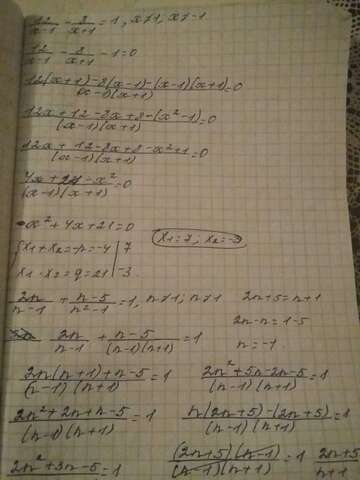 12/(x-1) - 8/(x+1) = 1, x≠1, x≠-1
12/(x-1) - 8/(x+1) - 1 = 0
(12(x+1)-8(x-1)-(x-1)(x+1))/((x-1)(x+1)) = 0
(12x+12-8x+8-(x²-1))/((x-1)(x+1)) = 0
(12x+12-8x+8-x²+1)/((x-1)(x+1)) = 0
(4x+21-x²)/((x-1)(x+1)) = 0
-x²+4x+21=0
{x₁+x₂=-p=-4 | 7
x₁·x₂=q=21 | -3
x₁=7, x₂=-3
2n/(n-1) + (n-5)/(n²-1) = 1, n≠1; n≠1
2n/(n-1) + (n-5)/((n-1)(n+1)) = 1
(2n(n+1)+n-5)/((n-1)(n+1)) = 1
(2n²+2n+n-5)/((n-1)(n+1)) = 1
2n²+3n-5 = 1
(2n²+5n-2n-5)/((n-1)(n+1)) = 1
(n(2n+5)-(2n+5))/((n-1)(n+1)) = 1
((2n+5)(n-1))/((n-1)(n+1)) = 1
2n+5/n+1
2n+5=n+1
2n-n=1-5
n=-1